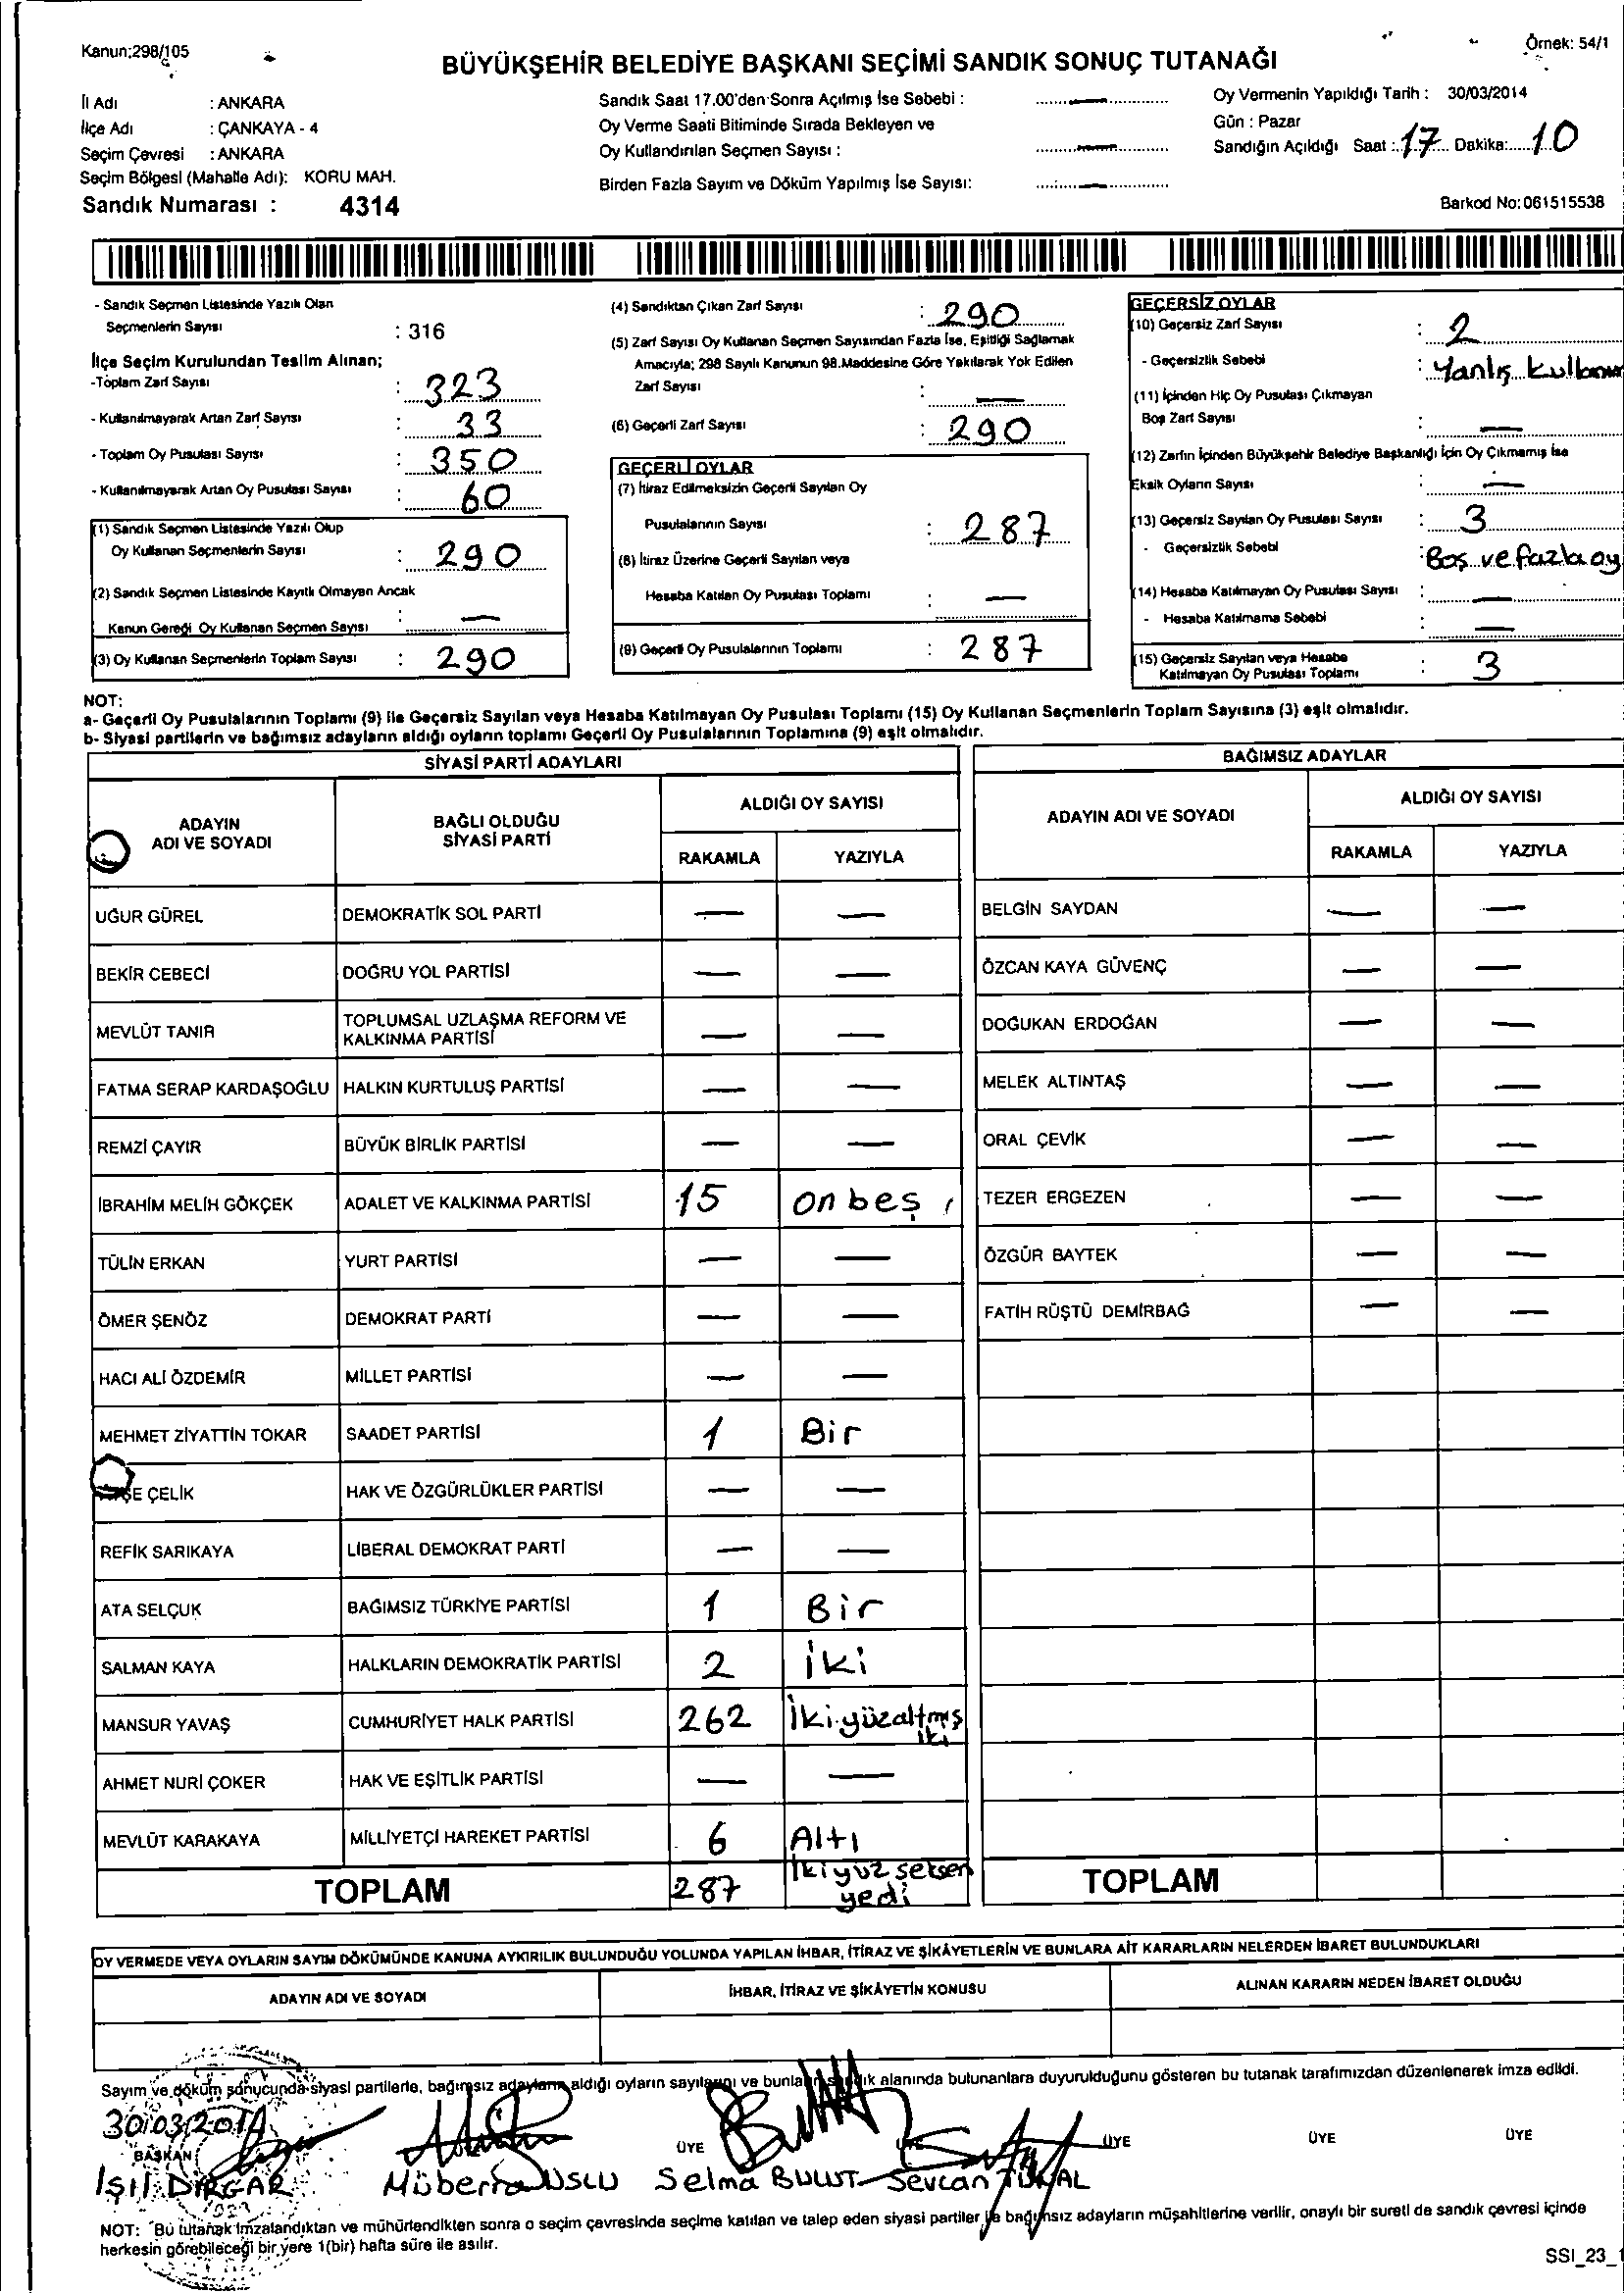 Kanun:298/105
Örnek: 54/1
BÜYÜKŞEHİR BELEDİYE BAŞKANI SEÇİMİ SANDIK SONUÇ TUTANAĞI
İl Adı : ANKARA
İlçe Adı : ÇANKAYA - 4
Seçim Çevresi : ANKARA
Seçim Bölgesi (Mahalle Adı): KORU MAH.
Sandık Numarası : 4314
Sandık Saat 17.00'den Sonra Açılmış İse Sebebi : —
Oy Verme Saati Bitiminde Sırada Bekleyen ve
Oy Kullandırılan Seçmen Sayısı : —
Birden Fazla Sayım ve Döküm Yapılmış İse Sayısı: —
Oy Vermenin Yapıldığı Tarih : 30/03/2014
Gün : Pazar
Sandığın Açıldığı Saat : 17 Dakika: 10
Barkod No: 061515538
- Sandık Seçmen Listesinde Yazılı Olan
Seçmenlerin Sayısı : 316
İlçe Seçim Kurulundan Teslim Alınan;
-Toplam Zarf Sayısı : 323
- Kullanılmayarak Artan Zarf Sayısı : 33
- Toplam Oy Pusulası Sayısı : 350
- Kullanılmayarak Artan Oy Pusulası Sayısı : 60
(1) Sandık Seçmen Listesinde Yazılı Olup
Oy Kullanan Seçmenlerin Sayısı : 290
(2) Sandık Seçmen Listesinde Kayıtlı Olmayan Ancak
Kanun Gereği Oy Kullanan Seçmen Sayısı : —
(3) Oy Kullanan Seçmenlerin Toplam Sayısı : 290
(4) Sandıktan Çıkan Zarf Sayısı : 290
(5) Zarf Sayısı Oy Kullanan Seçmen Sayısından Fazla İse, Eşitliği Sağlamak
Amacıyla; 298 Sayılı Kanunun 98.Maddesine Göre Yakılarak Yok Edilen
Zarf Sayısı : —
(6) Geçerli Zarf Sayısı : 290
GEÇERLİ OYLAR
(7) İtiraz Edilmeksizin Geçerli Sayılan Oy
Pusulalarının Sayısı : 287
(8) İtiraz Üzerine Geçerli Sayılan veya
Hesaba Katılan Oy Pusulası Toplamı : —
(9) Geçerli Oy Pusulalarının Toplamı : 287
GEÇERSİZ OYLAR
(10) Geçersiz Zarf Sayısı : 2
- Geçersizlik Sebebi : Yanlış
(11) İçinden Hiç Oy Pusulası Çıkmayan
Boş Zarf Sayısı : —
(12) Zarfın İçinden Büyükşehir Belediye Başkanlığı İçin Oy Çıkmamış İse
Eksik Oyların Sayısı : —
(13) Geçersiz Sayılan Oy Pusulası Sayısı : 3
- Geçersizlik Sebebi : Boş ve fazla oy
(14) Hesaba Katılmayan Oy Pusulası Sayısı : —
- Hesaba Katılmama Sebebi : —
(15) Geçersiz Sayılan veya Hesaba
Katılmayan Oy Pusulası Toplamı : 3
NOT:
a- Geçerli Oy Pusulalarının Toplamı (9) ile Geçersiz Sayılan veya Hesaba Katılmayan Oy Pusulası Toplamı (15) Oy Kullanan Seçmenlerin Toplam Sayısına (3) eşit olmalıdır.
b- Siyasi partilerin ve bağımsız adayların aldığı oyların toplamı Geçerli Oy Pusulalarının Toplamına (9) eşit olmalıdır.
SİYASİ PARTİ ADAYLARI
ADAYIN
ADI VE SOYADI
BAĞLI OLDUĞU
SİYASİ PARTİ
ALDIĞI OY SAYISI
RAKAMLA YAZIYLA
UĞUR GÜREL DEMOKRATİK SOL PARTİ — —
BEKİR CEBECİ DOĞRU YOL PARTİSİ — —
MEVLÜT TANIR TOPLUMSAL UZLAŞMA REFORM VE
KALKINMA PARTİSİ — —
FATMA SERAP KARDAŞOĞLU HALKIN KURTULUŞ PARTİSİ — —
REMZİ ÇAYIR BÜYÜK BİRLİK PARTİSİ — —
İBRAHİM MELİH GÖKÇEK ADALET VE KALKINMA PARTİSİ 15 on beş
TÜLİN ERKAN YURT PARTİSİ — —
ÖMER ŞENÖZ DEMOKRAT PARTİ — —
HACI ALİ ÖZDEMİR MİLLET PARTİSİ — —
MEHMET ZİYATTİN TOKAR SAADET PARTİSİ 1 Bir
ÇELİK HAK VE ÖZGÜRLÜKLER PARTİSİ — —
REFİK SARIKAYA LİBERAL DEMOKRAT PARTİ — —
ATA SELÇUK BAĞIMSIZ TÜRKİYE PARTİSİ 1 Bir
SALMAN KAYA HALKLARIN DEMOKRATİK PARTİSİ 2 İki
MANSUR YAVAŞ CUMHURİYET HALK PARTİSİ 262 İkiyüzaltmış
iki
AHMET NURİ ÇOKER HAK VE EŞİTLİK PARTİSİ — —
MEVLÜT KARAKAYA MİLLİYETÇİ HAREKET PARTİSİ 6 Altı
TOPLAM 287 İkiyüz seksen
yedi
BAĞIMSIZ ADAYLAR
ADAYIN ADI VE SOYADI
ALDIĞI OY SAYISI
RAKAMLA YAZIYLA
BELGİN SAYDAN — —
ÖZCAN KAYA GÜVENÇ — —
DOĞUKAN ERDOĞAN — —
MELEK ALTINTAŞ — —
ORAL ÇEVİK — —
TEZER ERGEZEN — —
ÖZGÜR BAYTEK — —
FATİH RÜŞTÜ DEMİRBAĞ — —
TOPLAM
OY VERMEDE VEYA OYLARIN SAYIM DÖKÜMÜNDE KANUNA AYKIRILIK BULUNDUĞU YOLUNDA YAPILAN İHBAR, İTİRAZ VE ŞİKÂYETLERİN VE BUNLARA AİT KARARLARIN NELERDEN İBARET BULUNDUKLARI
ADAYIN ADI VE SOYADI
İHBAR, İTİRAZ VE ŞİKÂYETİN KONUSU
ALINAN KARARIN NEDEN İBARET OLDUĞU
Sayım ve döküm sonucunda siyasi partilerle, bağımsız adayların aldığı oyların sayılarını ve bunların sandık alanında bulunanlara duyurulduğunu gösteren bu tutanak tarafımızdan düzenlenerek imza edildi.
30/03/2014
BAŞKAN ÜYE ÜYE ÜYE ÜYE ÜYE
IŞIL DIRGAR Müberra USLU Selma BULUT Sevcan
NOT: Bu tutanak imzalandıktan ve mühürlendikten sonra o seçim çevresinde seçime katılan ve talep eden siyasi partiler ile bağımsız adayların müşahitlerine verilir, onaylı bir sureti de sandık çevresi içinde
herkesin görebileceği bir yere 1(bir) hafta süre ile asılır.
SSI_23_1